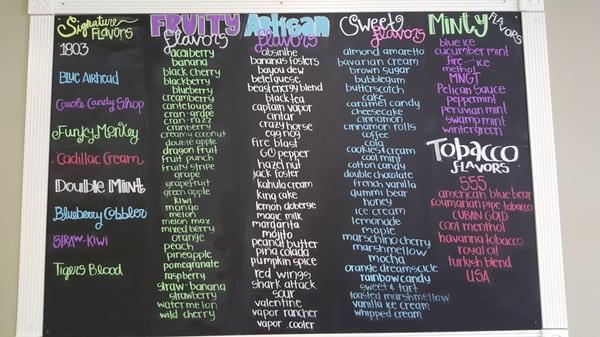 Signature
FLAVORS
1803
BLUE AIRHEAD
Creole Candy Shop
Funky Monkey
Cadillac Cream
Double Mint
Blueberry Cobbler
STRAW-KIWI
Tigers Blood
FRUITY
flavors
acaiberry
banana
black cherry
blackberry
blueberry
cremberry
canteloupe
cran-grape
cran-razz
cranberry
creamy coconut
double apple
dragon fruit
fruit punch
fruity stripe
grape
grapefruit
green apple
kiwi
mango
melon
melon max
mixed berry
orange
peach
pineapple
pomegranate
raspberry
straw-banana
strawberry
watermelon
wild cherry
Artisan
flavors
absinthe
bananas fosters
bayou dew
betelguese
beast energy blend
black tea
captain vapor
cintar
crazy horse
egg nog
fire blast
GO pepper
hazelnut
jack foster
kahlua cream
king cake
lemon doberge
magic milk
margarita
mojito
peanut butter
pina colada
pumpkin spice
red wings
shark attack
sour
valentine
vapor rancher
vapor cooler
Sweet
flavors
almond amaretto
bavarian cream
brown sugar
bubblegum
butterscotch
cake
caramel candy
cheesecake
cinnamon
cinnamon rolls
coffee
cola
cookies & cream
cool mint
cotton candy
double chocolate
french vanilla
gummy bear
honey
ice cream
lemonade
maple
marschino cherry
marshmellow
mocha
orange dreamsicle
rainbow candy
sweet & tart
toasted marshmellow
vanilla ice cream
whipped cream
MINTY
FLAVORS
blue ice
cucumber mint
fire ice
menthol
MNGT
Pelican Sauce
peppermint
peruvian mint
swamp mint
wintergreen
Tobacco
FLAVORS
555
american blue bear
coumarian pipe tobacco
CUBAN GOLD
cool menthol
havanna tobacco
royal oil
turkish blend
USA